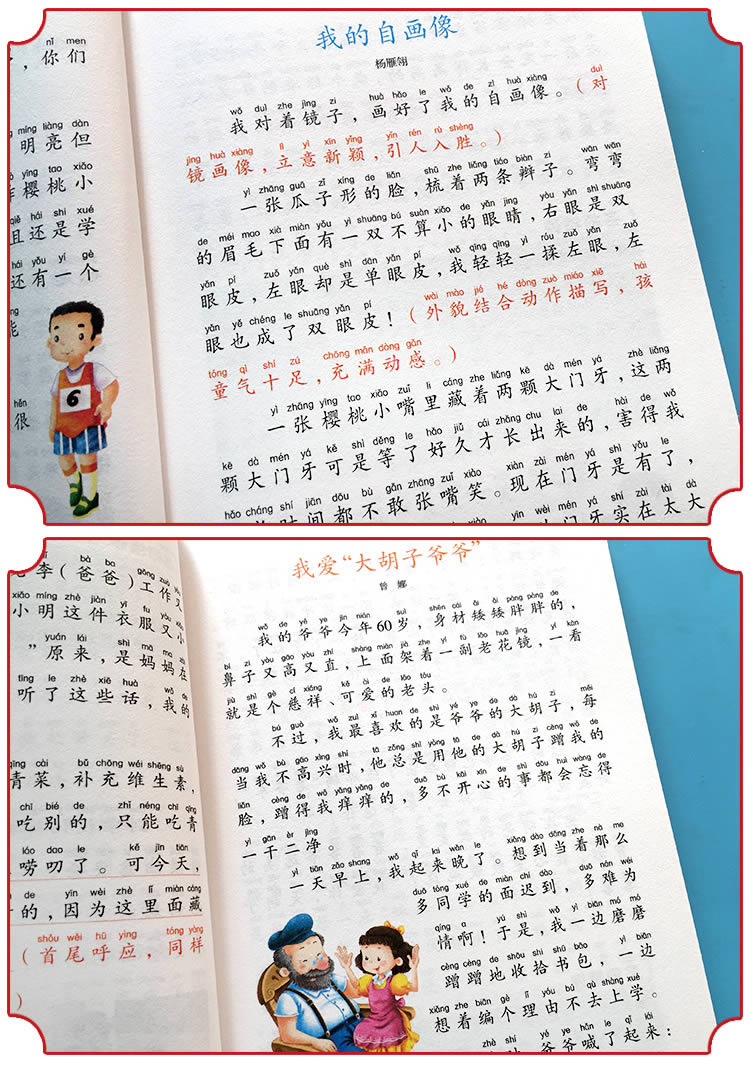 nǐ men
，你们
míng liàng dàn
明亮但
yīng tao xiǎo
樱桃小
qiě hái shi xué
且还是学
hái yǒu yí gè
还有一个
能
hěn
很
6
我的自画像
杨雁翎
wǒ duì zhe jìng zi huà hǎo le wǒ de zì huà xiàng duì
我对着镜子，画好了我的自画像。（对
jìng huà xiàng lì yì xīn yǐng yǐn rén rù shèng
镜画像，立意新颖，引人入胜。）
yì zhāng guā zǐ xíng de liǎn shū zhe liǎng tiáo biàn zi wān wān
一张瓜子形的脸，梳着两条辫子。弯弯
de méi mao xià miàn yǒu yì shuāng bú suàn xiǎo de yǎn jing yòu yǎn shì shuāng
的眉毛下面有一双不算小的眼睛，右眼是双
yǎn pí zuǒ yǎn què shì dān yǎn pí wǒ qīng qīng yì róu zuǒ yǎn zuǒ
眼皮，左眼却是单眼皮，我轻轻一揉左眼，左
yǎn yě chéng le shuāng yǎn pí wài mào jié hé dòng zuò miáo xiě hái
眼也成了双眼皮！（外貌结合动作描写，孩
tóng qì shí zú chōng mǎn dòng gǎn
童气十足，充满动感。）
yì zhāng yīng tao xiǎo zuǐ li cáng zhe liǎng kē dà mén yá zhè liǎng
一张樱桃小嘴里藏着两颗大门牙，这两
kē dà mén yá kě shì děng le hǎo jiǔ cái zhǎng chu lai de hài de wǒ
颗大门牙可是等了好久才长出来的，害得我
hǎo cháng shí jiān dōu bù gǎn zhāng zuǐ xiào xiàn zài mén yá shì yǒu le
时间都不敢张嘴笑。现在门牙是有了，
yīn wèi mén yá shí zài tài dà
为门牙实在太大
bà ba gōng zuò yòu
李（爸爸）工作又
xiǎo míng zhè jiàn yī fu yòu xiǎo
小明这件衣服又小
yuán lái shì mā ma zài
”原来，是妈妈在
tīng le zhè xiē huà wǒ de
听了这些话，我的
qīng cài bǔ chōng wéi shēng sù
青菜，补充维生素，
chī bié de zhǐ néng chī qīng
吃别的，只能吃青
láo dao le kě jīn tiān
唠叨了。可今天，
de yīn wèi zhè lǐ miàn cáng
的，因为这里面藏
shǒu wěi hū yìng tóng yàng
（首尾呼应，同样
）
我爱“大胡子爷爷”
曾娜
wǒ de yé ye jīn nián suì shēn cái ǎi ǎi pàng pàng de
我的爷爷今年60岁，身材矮矮胖胖的，
bí zi yòu gāo yòu zhí shàng miàn jià zhe yí fù lǎo huā jìng yí kàn
鼻子又高又直，上面架着一副老花镜，一看
jiù shì gè cí xiáng kě ài de lǎo tóu
就是个慈祥、可爱的老头。
bú guò wǒ zuì xǐ huan de shì yé ye de dà hú zi měi
不过，我最喜欢的是爷爷的大胡子，每
dāng wǒ bù gāo xìng shí tā zǒng shì yòng tā de dà hú zi cèng wǒ de
当我不高兴时，他总是用他的大胡子蹭我的
liǎn cèng de wǒ yǎng yǎng de duō bù kāi xīn de shì dōu huì wàng de
脸，蹭得我痒痒的，多不开心的事都会忘得
yì gān èr jìng
一干二净。
yì tiān zǎo shang wǒ qǐ lai wǎn le xiǎng dào dāng zhe nà me
一天早上，我起来晚了。想到当着那么
duō tóng xué de miàn chí dào duō nán wéi
多同学的面迟到，多难为
qíng a yú shì wǒ yì biān mó mó
情啊！于是，我一边磨磨
cèng cèng de shōu shi shū bāo yì biān
蹭蹭地收拾书包，一边
xiǎng zhe biān gè lǐ yóu bú qù shàng xué
想着编个理由不去上学。
yé ye hǎn le qǐ lái
爷爷喊了起来：